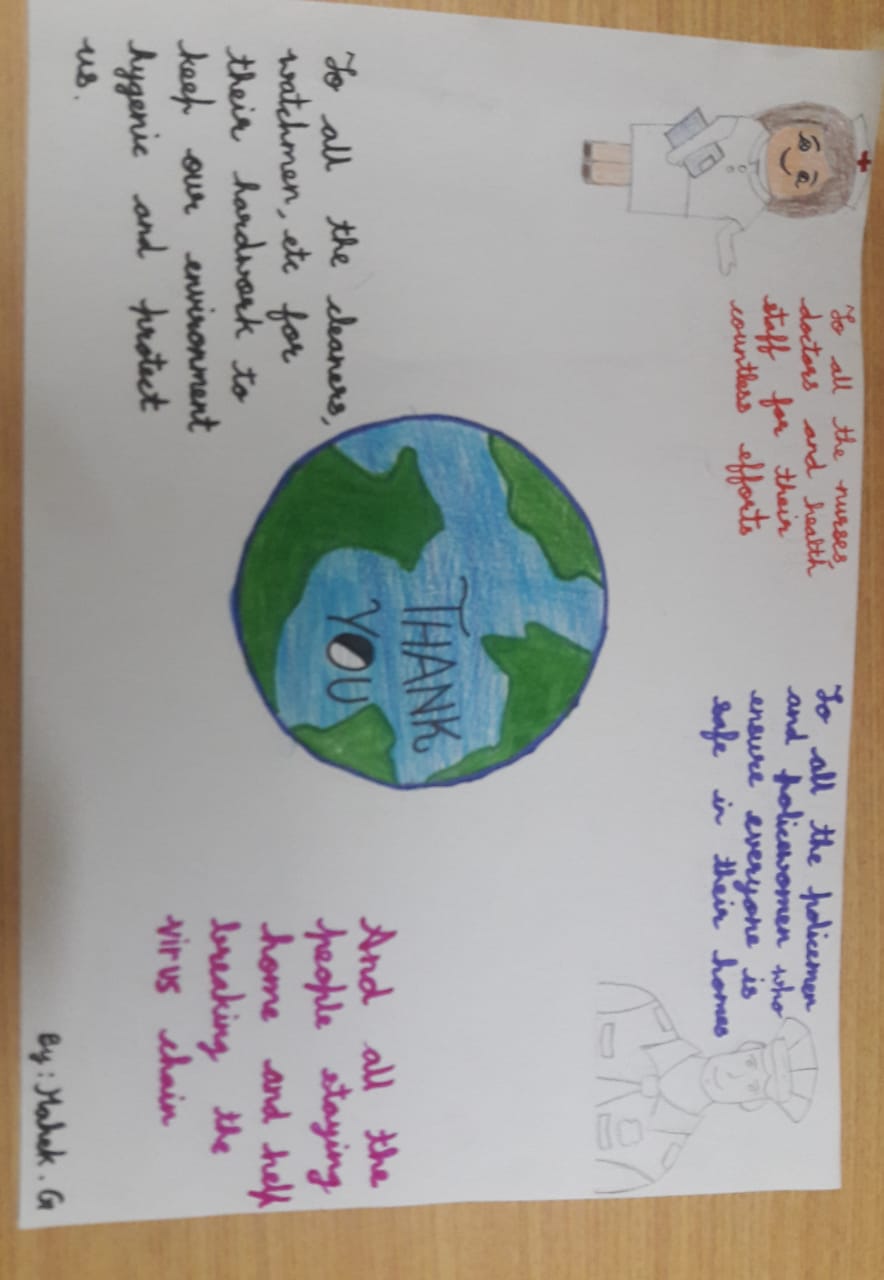 To all the nurses,
doctors and health
staff for their
countless efforts
To all the policemen
and policewomen who
ensure everyone is
safe in their homes
THANK
YOU
To all the cleaners,
watchmen, etc for
their hardwork to
keep our environment
hygenic and protect
us.
And all the
people staying
home and help
breaking the
virus chain
By : Mahek . G